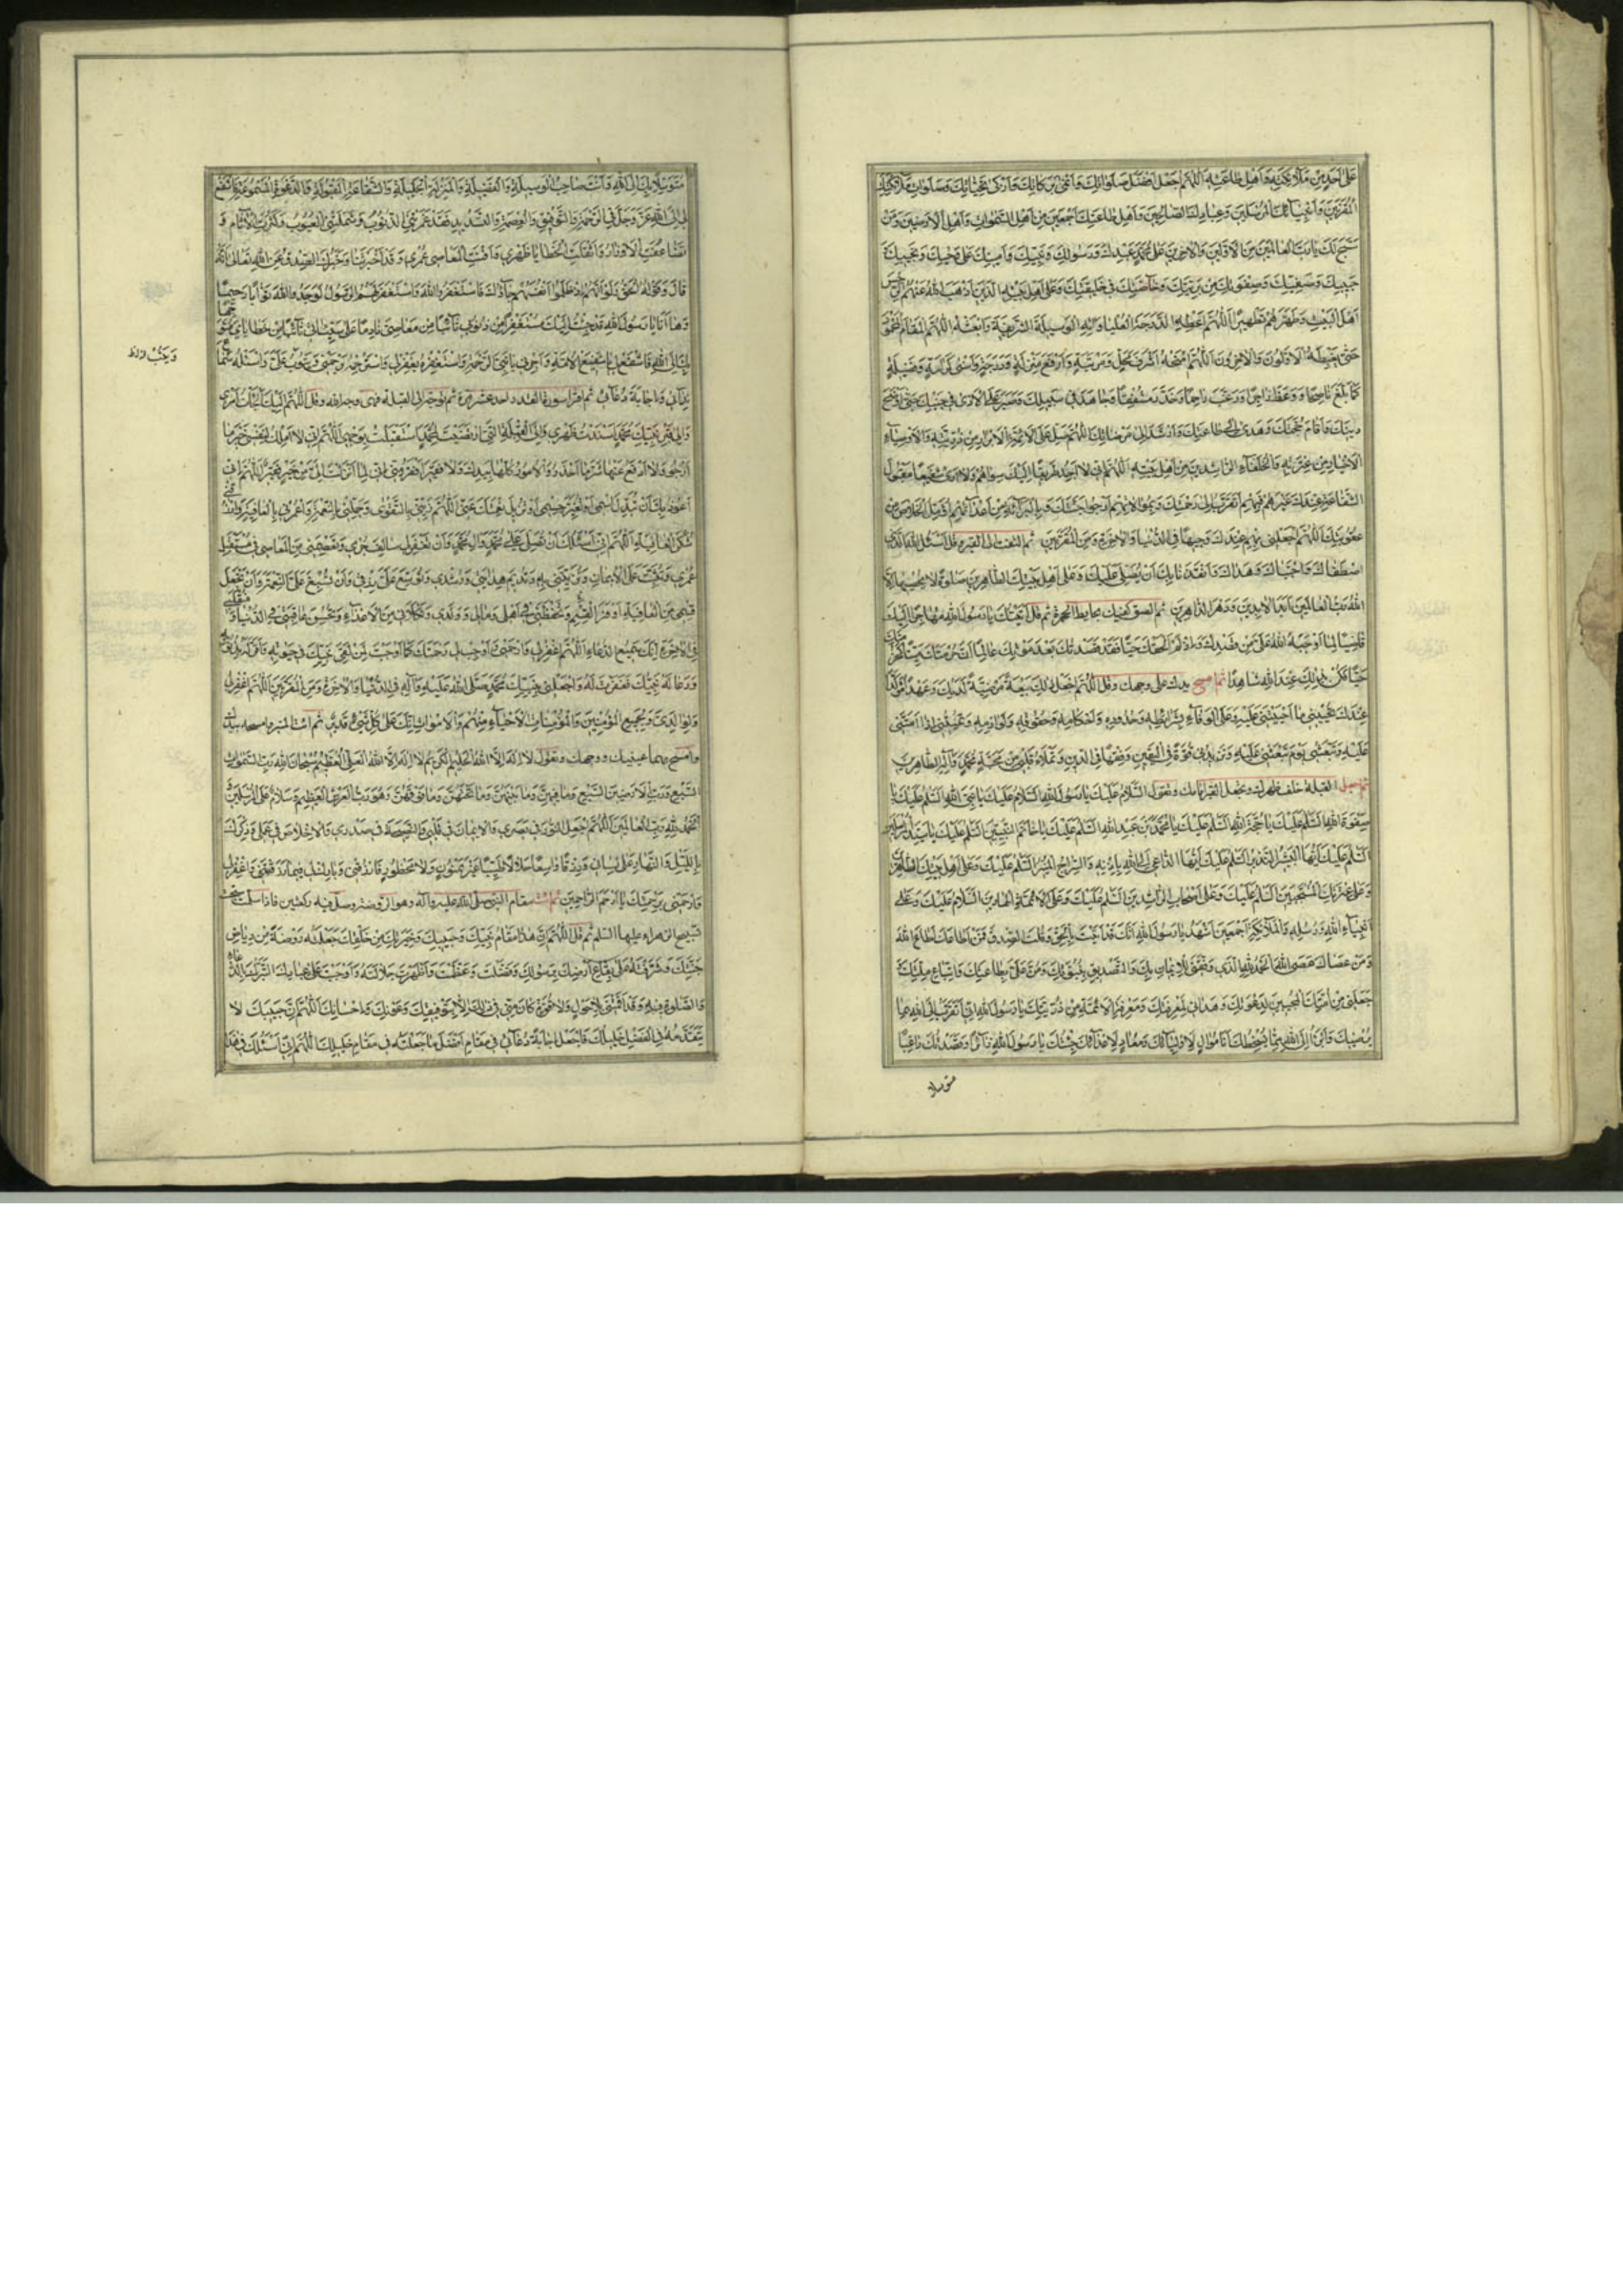 على احد من ملائكته واهل طاعته اللهم اجعل افضل صلواتك وانمى بركاتك وازكى تحياتك وصلوات ملائكتك
المقربين وانبيائك المرسلين وعبادك الصالحين واهل طاعتك اجمعين من اهل السموات واهل الارضين ومن
سبح لك يا رب العالمين من الاولين والاخرين على محمد عبدك ورسولك ونبيك وامينك على وحيك ونجيبك
حبيبك وصفيك وصفوتك من بريتك وخاصتك في خليقتك وعلى اهل بيته الذين اذهب الله عنهم الرجس
اهل البيت وطهرهم تطهيرا اللهم اعطه الدرجة العليا واته الوسيلة الشريفة وابعثه اللهم المقام المحمود
حتى يغبطه الاولون والاخرون اللهم امنحه اشرف محل ومرتبة وارفع منزلة ودرجة واسنى كرامة وفضيلة
كما بلغ ناصحا ووعظ زاجرا ورغب راحما وحذر مشفقا وجاهد في سبيلك وصبر على الاذى في جنبك حتى اوضح
دينك واقام حجتك وهدى الى طاعتك وارشد الى مرضاتك اللهم صل على الائمة الابرار من ذريته والاوصياء
الاخيار من عترته والخلفاء الراشدين من اهل بيته اللهم اني لا اجد طريقا اليك سواهم ولا ارى شفيعا مقبول
الشفاعة عندك غيرهم فبهم اتقرب الى رحمتك وبموالاتهم ارجو جنتك وبالبراءة من اعدائهم اؤمل الخلاص من
عقوبتك اللهم اجعلني بهم عندك وجيها في الدنيا والاخرة ومن المقربين ثم التفت الى القبر وقل اسئل الله الذي
اصطفاك واجتباك وهداك وانقذنا بك ان يصلي عليك وعلى اهل بيتك الطاهرين صلوة لا يحصيها الا
الله رب العالمين ابد الابدين ودهر الداهرين ثم الصق كفيك بحايط الحجرة ثم قل اتيتك يا رسول الله مهاجرا اليك
قاضيا لما اوجبه الله على من قصدك واذ لم الحقك حيا فقد قصدتك بعد موتك عالما ان حرمتك ميتا كحرمتك
حيا فكن لي بذلك عند الله شاهدا ثم امسح يدك على وجهك وقل اللهم اجعل ذلك بيعة مرضية لديك وعهدا مؤكدا
عندك تحييني ما احييتني عليه وعلى الوفاء بشرايطه وحدوده واحكامه وحقوقه ولوازمه وتميتني اذا امتني
عليه وتبعثني يوم تبعثني عليه وتزيدني قوة في اليقين وفقها في الدين وتملأ قلبي من محبة محمد وآله الطاهرين
ثم اجعل القبلة خلف ظهرك وتجعل القبر امامك وتقول السلام عليك يا رسول الله السلام عليك يا نبي الله السلم عليك يا
صفوة الله السلم عليك يا حجة الله السلم عليك يا محمد بن عبد الله السلم عليك يا خاتم النبيين السلم عليك يا سيد المرسلين
السلم عليك ايها البشير النذير السلم عليك ايها الداعي الى الله باذنه والسراج المنير السلم عليك وعلى اهل بيتك الطاهرين
وعلى عترتك المنتجبين السلم عليك وعلى اصحابك الراشدين السلم عليك وعلى الائمة الهادين السلام عليك وعلى
انبياء الله ورسله والملائكة اجمعين اشهد يا رسول الله انك قد اتيت بالحق وقلت الصدق فمن اطاعك اطاع الله
ومن عصاك عصى الله الحمد لله الذي وفقني للايمان بك والتصديق بنبوتك ومن علي بطاعتك واتباع ملتك
جعلني من امتك المجيبين لدعوتك وهداني لمعرفتك ومعرفة الائمة من ذريتك يا رسول الله اني اتقرب الى الله بما
يرضيك وابرأ الى الله مما يسخطك انا موال لاوليائك ومعاد لاعدائك جئتك يا رسول الله زائرا وقصدتك راغبا
متوسلا
متوسلا بك الى الله وانت صاحب الوسيلة والفضيلة والمنزلة الجليلة والشفاعة المقبولة والدعوة المسموعة فاشفع
لي الى الله عز وجل في الرحمة والتوفيق والعصمة والتسديد فقد غمرتني الذنوب وشملتني العيوب وكثرت الاثام و
تضاعفت الاوزار واثقلت الخطايا ظهري وافنت المعاصي عمري وقد اخبرتنا وخبرك الصدق عن الله تعالى انه
قال وقوله الحق ولو انهم اذ ظلموا انفسهم جاؤك فاستغفروا الله واستغفر لهم الرسول لوجدوا الله توابا رحيما
وها انا يا رسول الله قد جئت اليك مستغفرا من ذنوبي تائبا من معاصي نادما على سيئاتي تائبا من خطاياي متوجها
بك الى الله فاشفع لي يا شفيع الامة واجرني يا نبي الرحمة واستغفره يغفر لي واسترحمه يرحمني ويتوب علي واسئله سماع
ويكتب
ندائي واجابة دعائي ثم اقرأ سورة القدر احد عشر مرة ثم توجه الى القبلة فهي وجه الله وقل اللهم اليك الجأت امري
والى قبر نبيك محمد اسندت ظهري والى القبلة التي ارتضيت لمحمد استقبلت بوجهي اللهم اني لا املك لنفسي خير ما
ارجو ولا ادفع عنها شر ما احذر والامور كلها بيدك ولا فقير افقر مني اني لما انزلت الي من خير فقير اللهم اني
اعوذ بك ان تبدل اسمي او تغير جسمي او تزيل نعمتك عني اللهم زيني بالتقوى وجملني بالنعمة واغمرني بالعافية وارزقني
شكر العافية اللهم اني اسئلك ان تصلي على محمد وال محمد وان تغفر لي سالف جرمي وتعصمني من المعاصي في مستقبل
عمري وتثبت على الايمان
قسمي من العافية اوفر القسم وتحفظني في اهلي ومالي وولدي وتكلأني من الاعداء وتحسن عاقبتي في الدنيا ومنقلبي
في الاخرة انك سميع الدعاء اللهم اغفر لي وارحمني واوجب لي رحمتك كما اوجبت لمن لقي نبيك في حيوته واقر له بذنوبه
ودعا له نبيك فغفرت له واجعلني بنبيك محمد صلى الله عليه وآله في الدنيا والاخرة ومن المقربين اللهم اغفر لي
ولوالدي ولجميع المؤمنين والمؤمنات الاحياء منهم والاموات انك على كل شيء قدير ثم ائت المنبر وامسحه بيدك
وامسح بهما عينيك ووجهك وتقول لا اله الا الله الحليم الكريم لا اله الا الله العلي العظيم سبحان الله رب السموات
السبع ورب الارضين السبع وما فيهن وما بينهن وما تحتهن وما فوقهن وهو رب العرش العظيم وسلام على المرسلين
الحمد لله رب العالمين اللهم اجعل النور في بصري والايمان في قلبي والنصيحة في صدري والاخلاص في عملي وذكرك
بالليل والنهار على لساني ورزقا واسعا حلالا طيبا غير ممنون ولا محظور فارزقني وبارك لي فيما رزقتني واغفر لي
وارحمني برحمتك يا ارحم الراحمين ثم ائت مقام النبي صلى الله عليه وآله وهو الروضة وصل فيه ركعتين فاذا سلمت سبحت
تسبيح الزهراء عليها السلم ثم قل اللهم ان هذا مقام نبيك وحبيبك وخيرتك من خلقك جعلته روضة من رياض
جنتك وشرفته على بقاع ارضك برسولك وفضلت وعظمت واظهرت جلالته واوجبت على عبادك التبرك بالدعاء
والصلوة فيه وقد اقمتني بلا حول ولا قوة كان مني في ذلك الا بتوفيقك وعونك واحسانك اللهم ان حبيبك لا
يتقدمه في الفضل خليلك فاجعل اجابة دعائي في مقامه افضل ما جعلته في مقام خليلك اللهم اني اسئلك في هذا